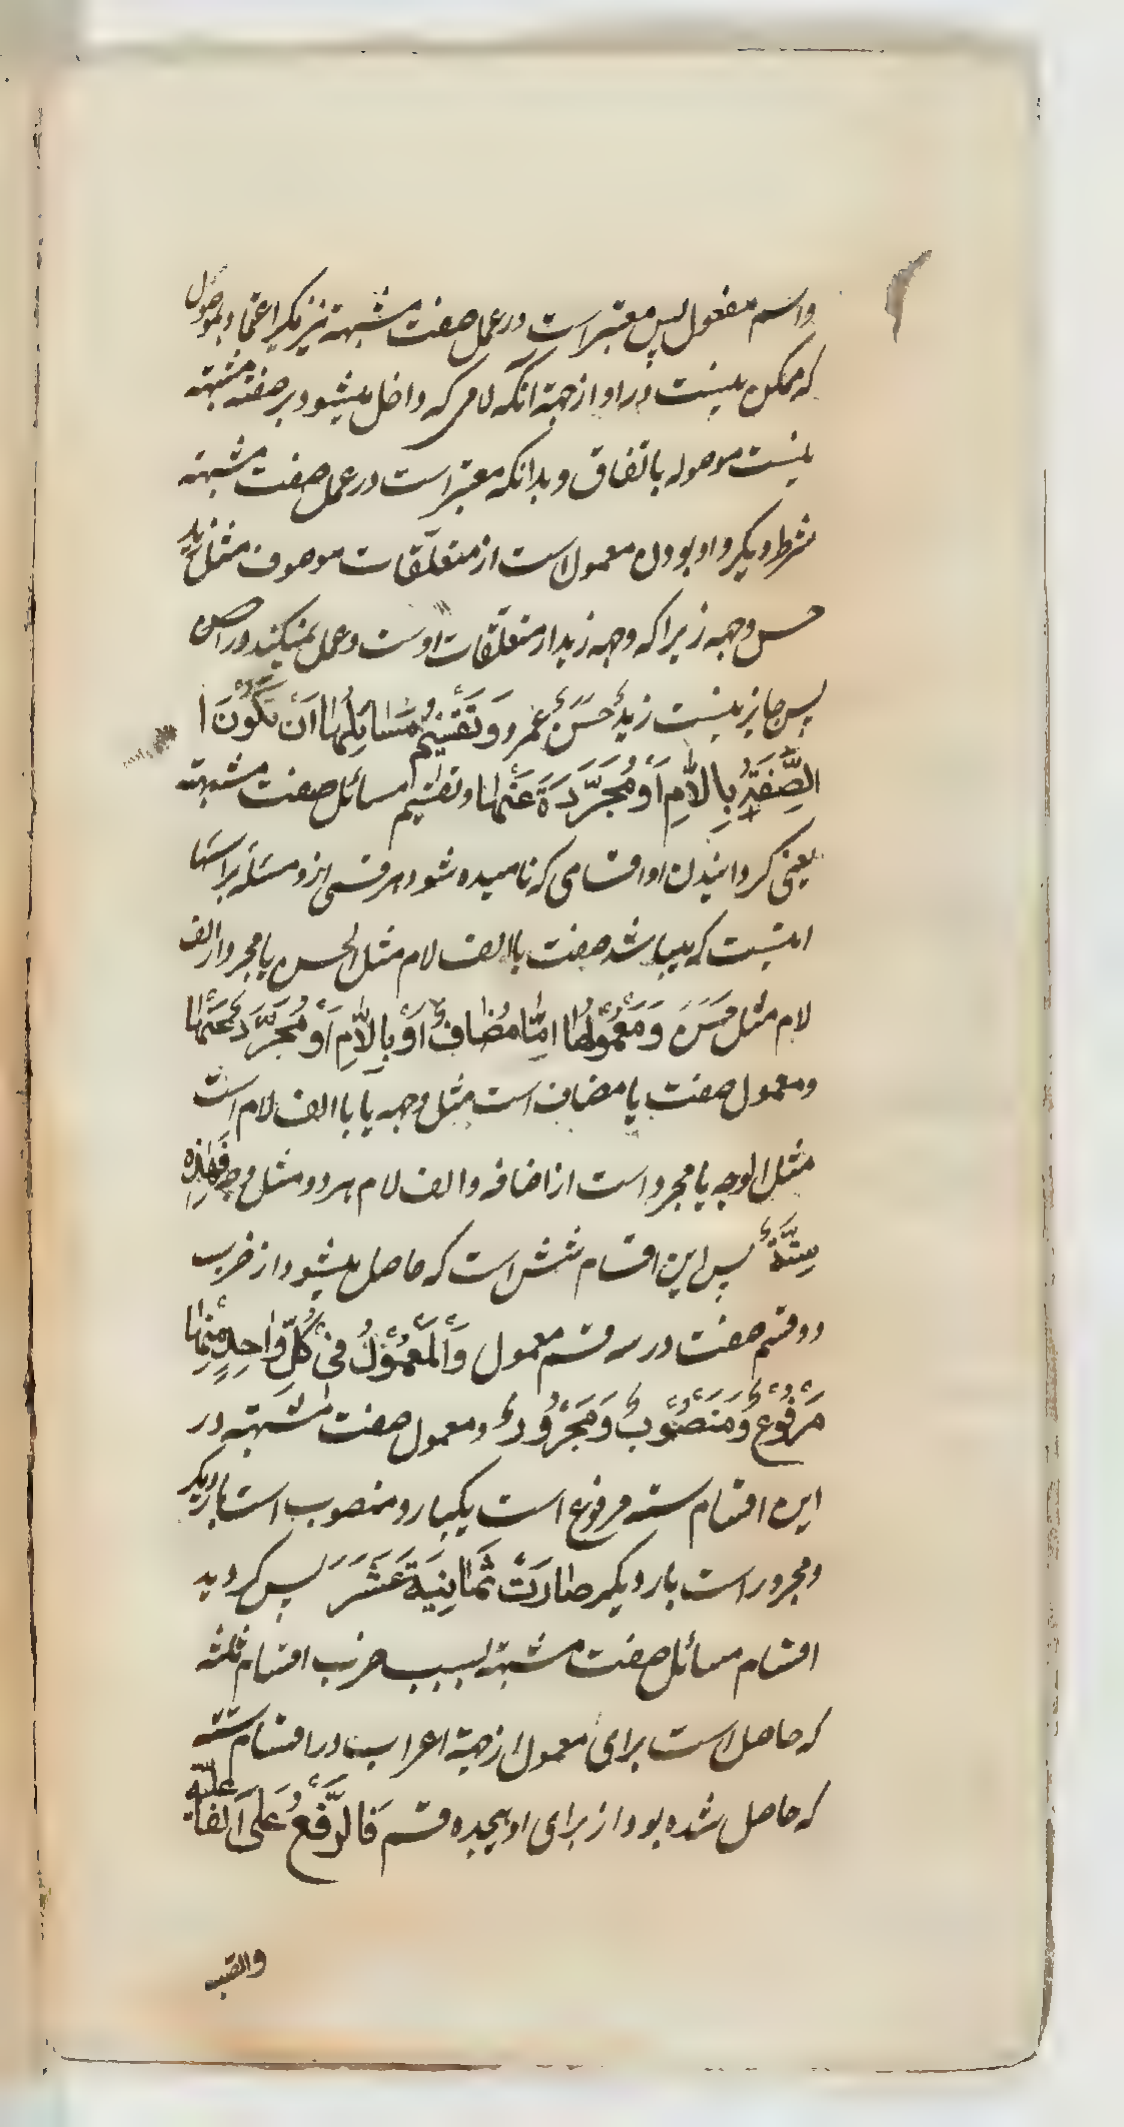 واسم مفعول پس معتبر است در عمل صفت مشبهة نیز مگر اعتماد بموصول
که ممکن نیست در او از جهة آنکه لامی که داخل میشود بر صفة مشبهه
نیست موصوله باتفاق و بدانکه معتبر است در عمل صفت مشبهه
شرط دیگر و او بودن معمول است از متعلّقات موصوف مثل زید
حسن وجهه زیرا که وجهه زید از متعلقات اوست و عمل نمیکند در
پس جایز نیست زیدٌ حَسَنٌ عمرو وَ تَقْسِیْمُ مَسَائِلِهَا اَنْ تَکُوْنَ ا
الصِّفَةُ بِاللّامِ اَوْ مُجَرَّدَةً عَنْهَا و تقسیم مسائل صفت مشبهه
یعنی کردانیدن او اقسامی که نامیده شود هر قسمی ازو مسئله براسها
اینست که میباشد صفت باالف لام مثل الحسن یا مجرد از الف
لام مثل حَسَنَ وَ مَعْمُوْلُهَا اِمَّا مُضَافٌ اَوْ بِاللّامِ اَوْ مُجَرَّدٌ عَنْهَا
و معمول صفت یا مضاف است مثل وجهه یا باالف لام است
مثل الوجه یا مجرد است از اضافه و الف لام هر دو مثل وجه فَهٰذِهِ
سِتَّةٌ پس این اقسام شش است که حاصل میشود از ضرب
دو قسم صفت در سه قسم معمول وَالْمَعْمُوْلُ فِیْ کُلِّ وَاحِدٍ مِنْهَا
مَرْفُوْعٌ وَ مَنْصُوْبٌ وَ مَجْرُوْرٌ و معمول صفت مشبهه در
این اقسام سته مرفوع است یکبار و منصوب است بار دیکر
و مجرور است بار دیکر صَارَتْ ثَمَانِیَةَ عَشَرَ پس کردید
اقسام مسائل صفت مشبهه بسبب ضرب اقسام ثلثه
که حاصل است برای معمول از جهة اعراب در اقسام سته
که حاصل شده بود از برای او هیجده قسم فَالرَّفْعُ عَلَی الْفَاعِلِیَّةِ
والنصب